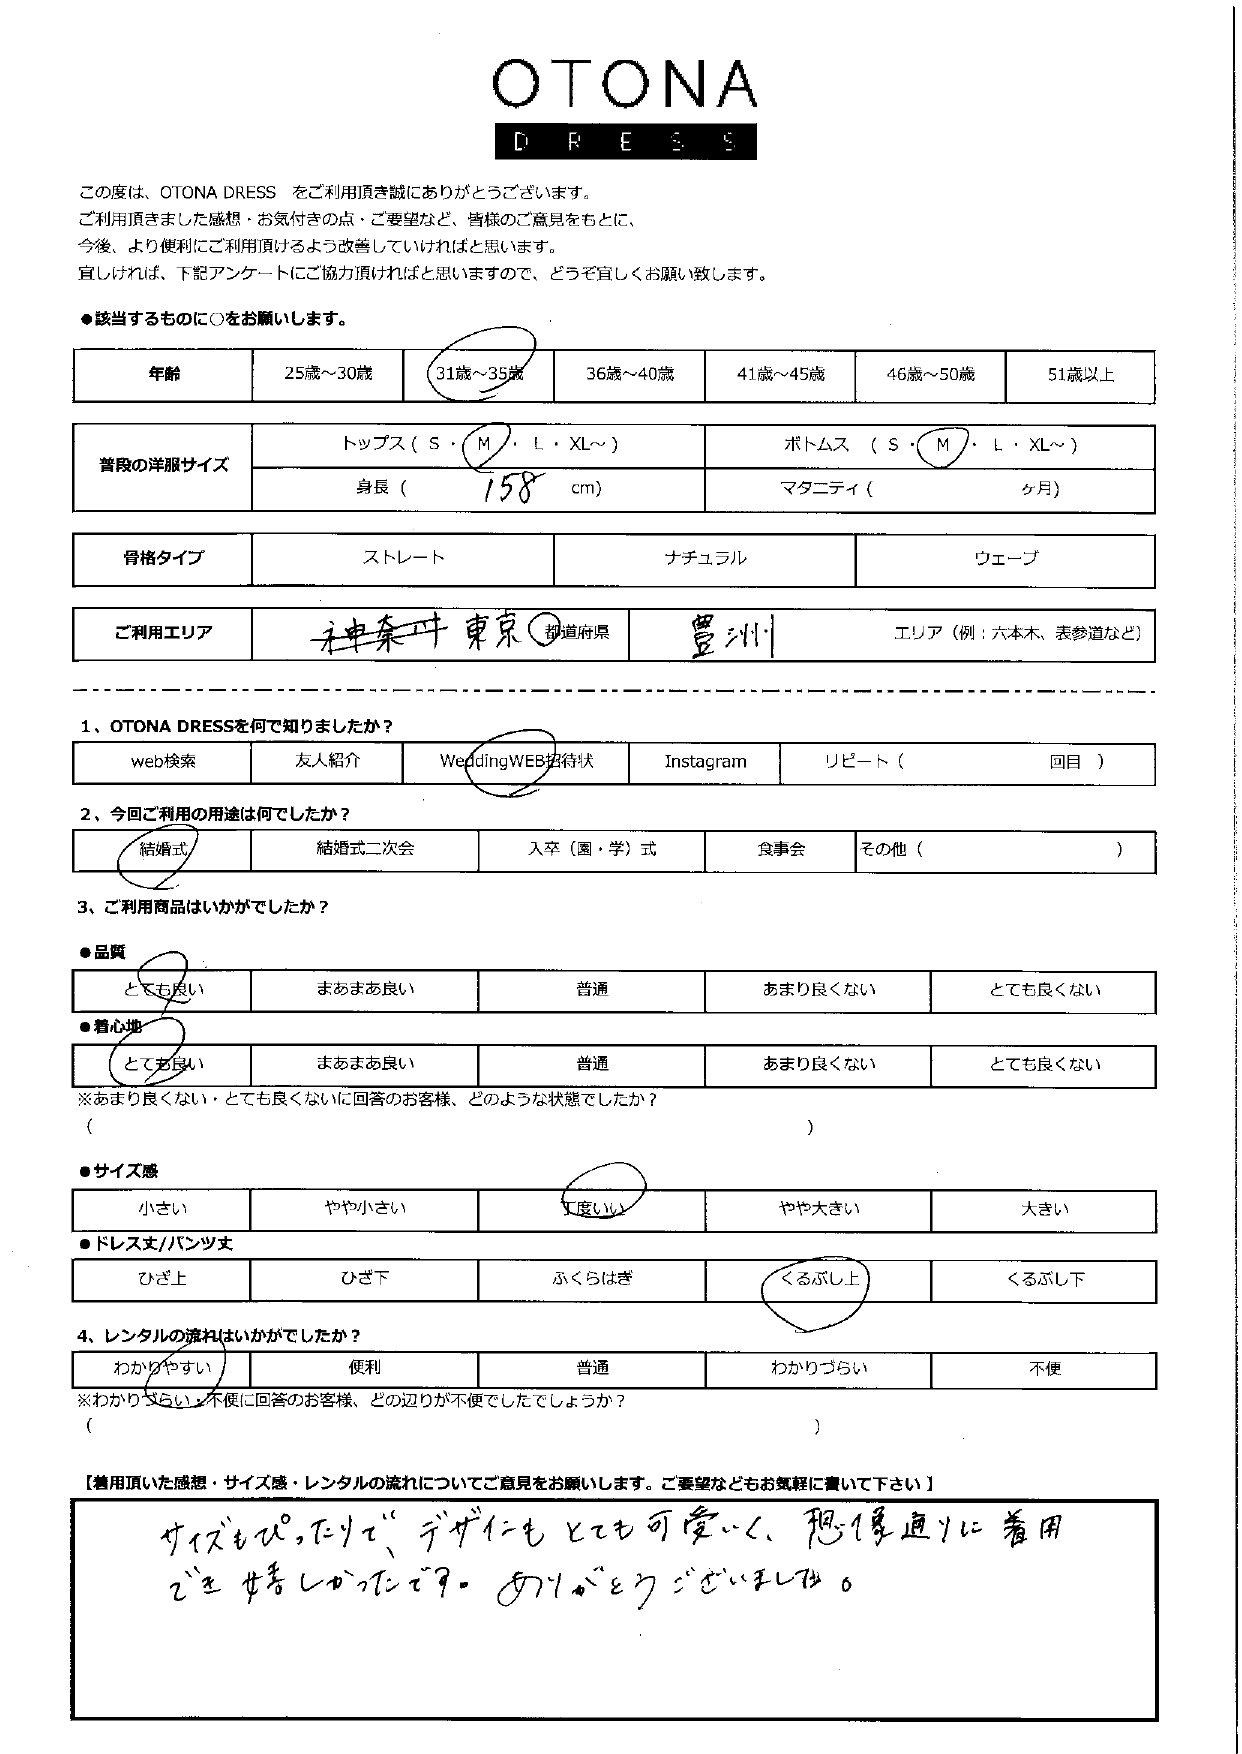 OTONA
DRESS
この度は、OTONA DRESS をご利用頂き誠にありがとうございます。
ご利用頂きました感想・お気付きの点・ご要望など、皆様のご意見をもとに、
今後、より便利にご利用頂けるよう改善していければと思います。
宜しければ、下記アンケートにご協力頂ければと思いますので、どうぞ宜しくお願い致します。
●該当するものに○をお願いします。
年齢 25歳～30歳 31歳～35歳 36歳～40歳 41歳～45歳 46歳～50歳 51歳以上
普段の洋服サイズ トップス ( S ・ M ・ L ・ XL～ ) ボトムス ( S ・ M ・ L ・ XL～ )
身長 ( 158 cm) マタニティ ( ヶ月)
骨格タイプ ストレート ナチュラル ウェーブ
ご利用エリア 神奈川 東京 都道府県 豊洲 エリア（例：六本木、表参道など）
1、OTONA DRESSを何で知りましたか？
web検索 友人紹介 WeddingWEB招待状 Instagram リピート（ 回目 ）
2、今回ご利用の用途は何でしたか？
結婚式 結婚式二次会 入卒（園・学）式 食事会 その他（ ）
3、ご利用商品はいかがでしたか？
●品質
とても良い まあまあ良い 普通 あまり良くない とても良くない
●着心地
とても良い まあまあ良い 普通 あまり良くない とても良くない
※あまり良くない・とても良くないに回答のお客様、どのような状態でしたか？
（ ）
●サイズ感
小さい やや小さい 丁度いい やや大きい 大きい
●ドレス丈/パンツ丈
ひざ上 ひざ下 ふくらはぎ くるぶし上 くるぶし下
4、レンタルの流れはいかがでしたか？
わかりやすい 便利 普通 わかりづらい 不便
※わかりづらい・不便に回答のお客様、どの辺りが不便でしたでしょうか？
（ ）
【着用頂いた感想・サイズ感・レンタルの流れについてご意見をお願いします。ご要望などもお気軽に書いて下さい】
サイズもぴったりで、デザインもとても可愛いく、想像通りに着用
でき嬉しかったです。ありがとうございました。